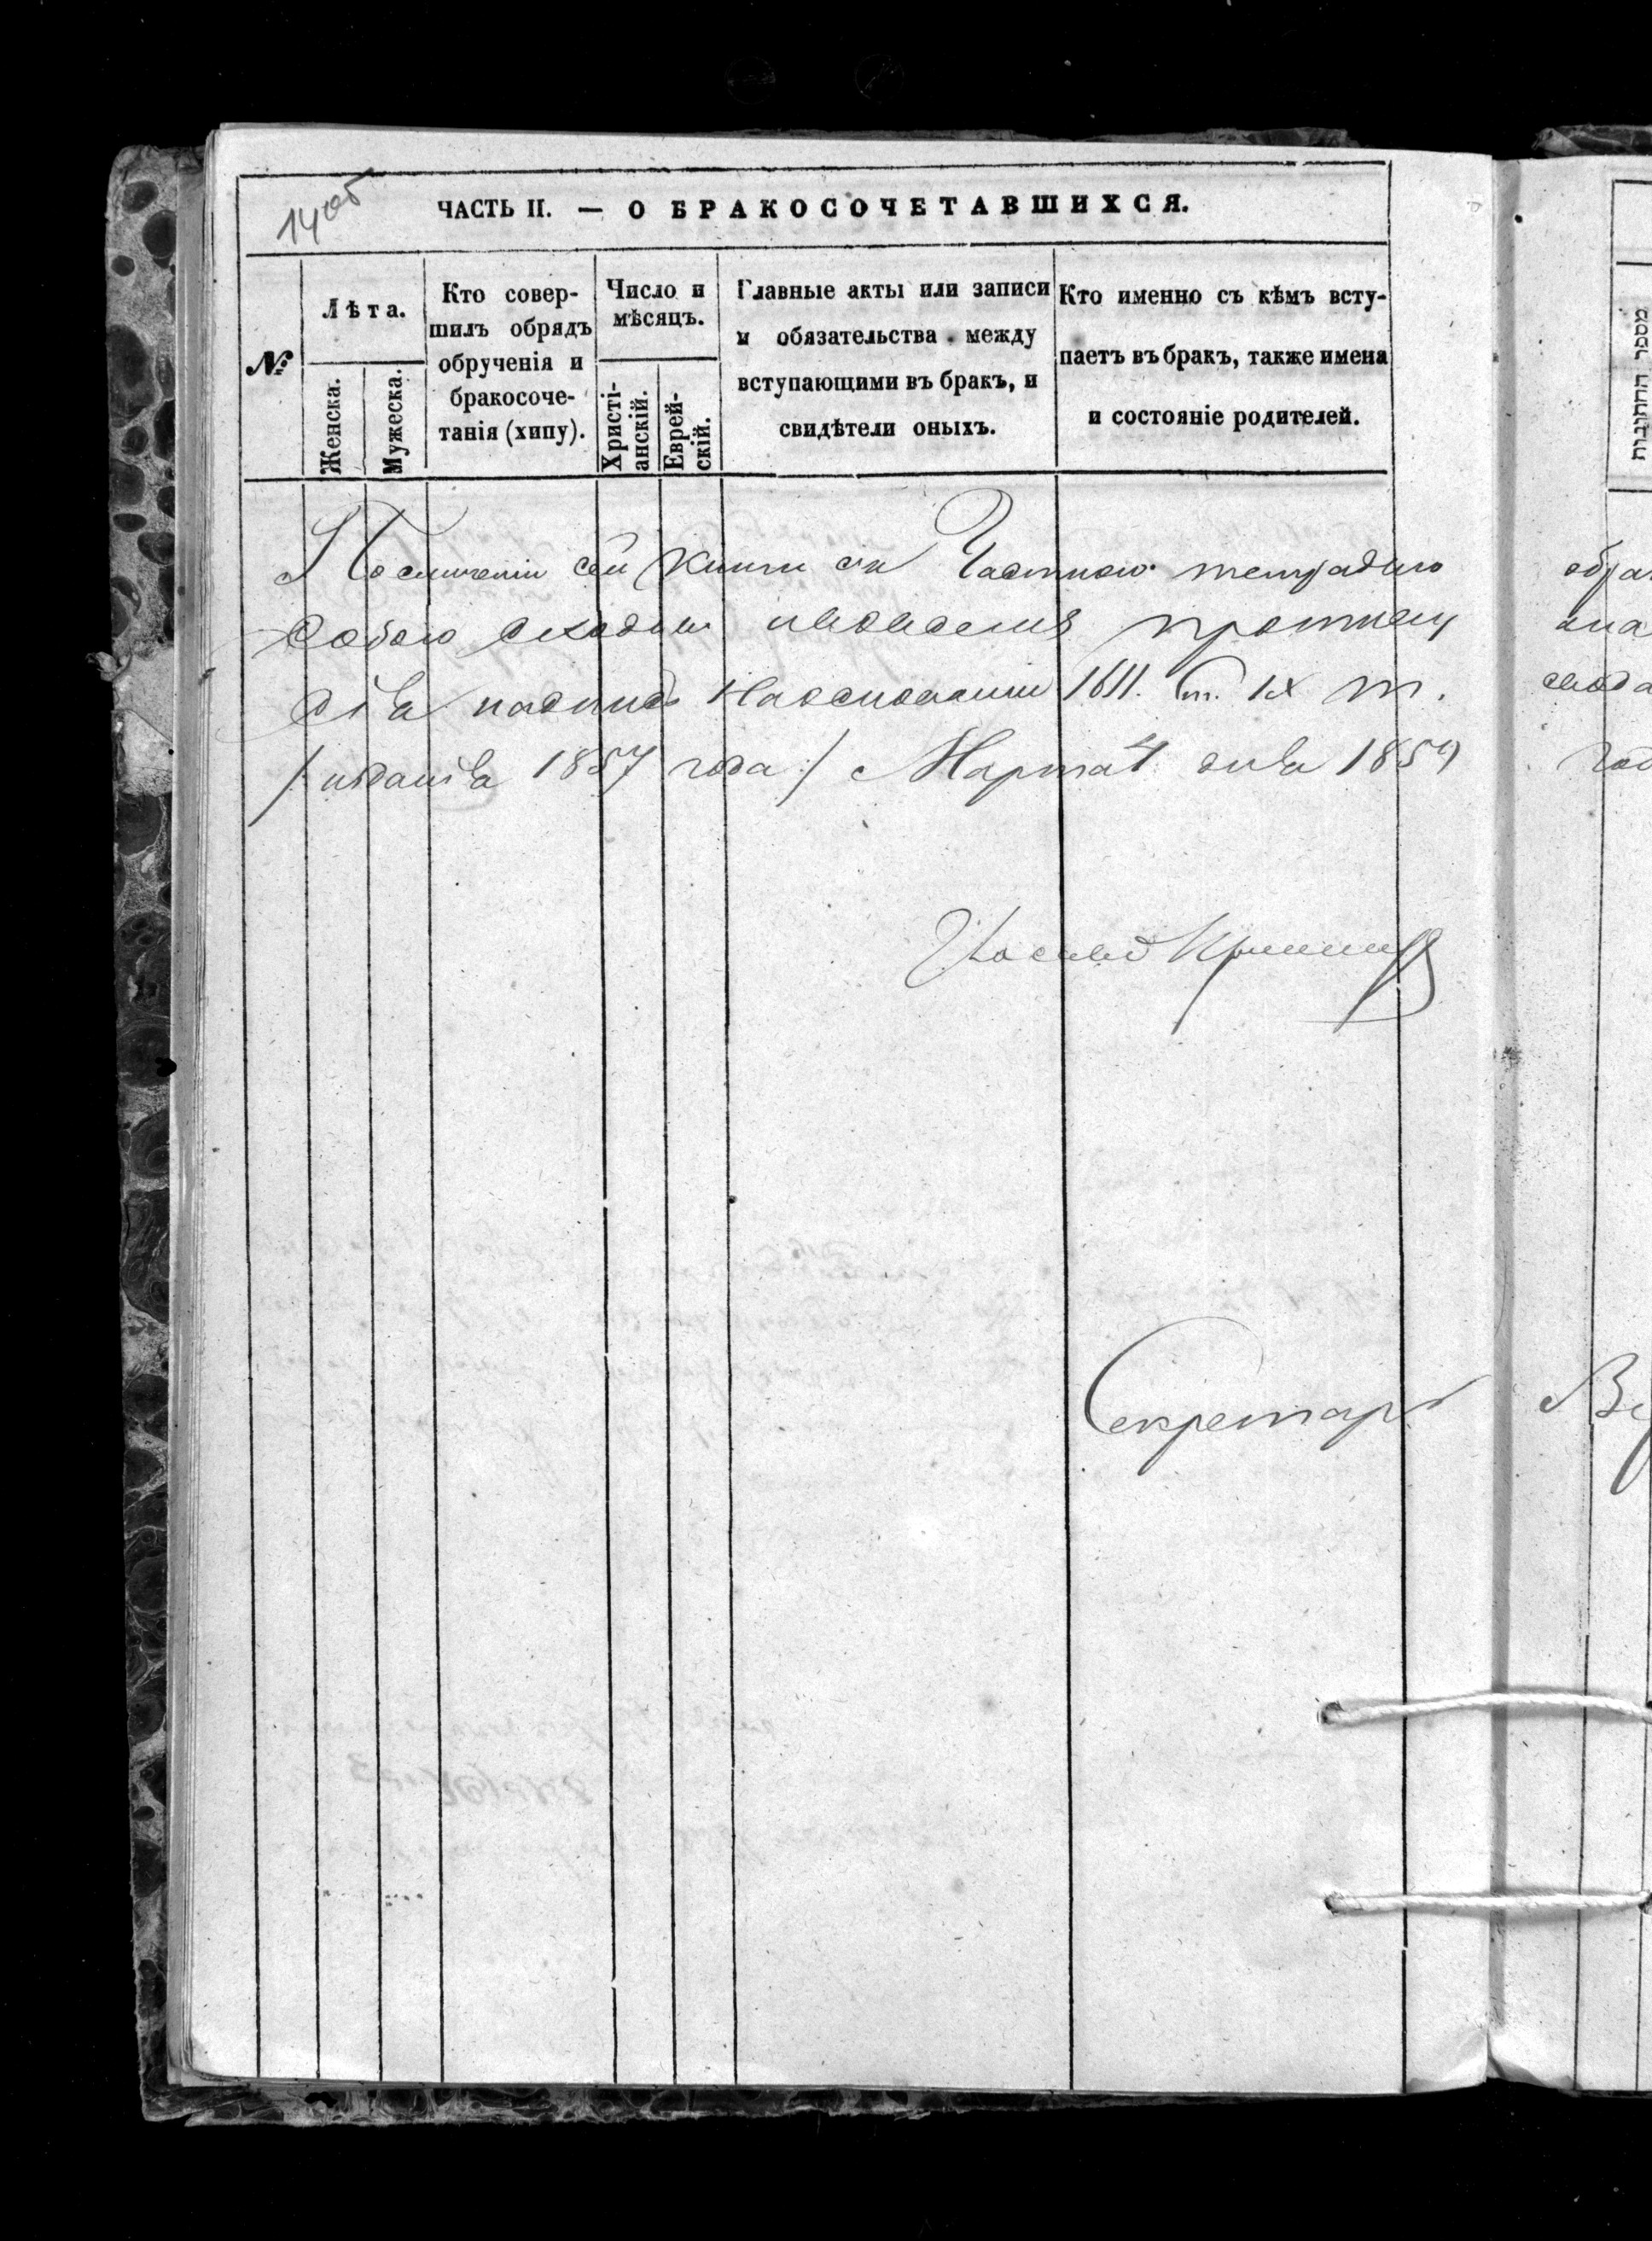 14об
ЧАСТЬ II. — О БРАКОСОЧЕТАВШИХСЯ.
№
Лѣта.
Женска.
Мужеска.
Кто совер-
шилъ обрядъ
обрученія и
бракосоче-
танія (хипу).
Число и
мѣсяцъ.
Христі-
анскій.
Еврей-
скій.
Главные акты или записи
и обязательства между
вступающими въ бракъ, и
свидѣтели оныхъ.
Кто именно съ кѣмъ всту-
паетъ въ бракъ, также имена
и состояніе родителей.
По сличеніи сей книги съ Частною тетрадью
собою сходны
надпись На основаніи 1611. ст. IX т.
/: изданія 1857 года :/ Марта 4 дня 1859
Секретарь
מספר החתונות